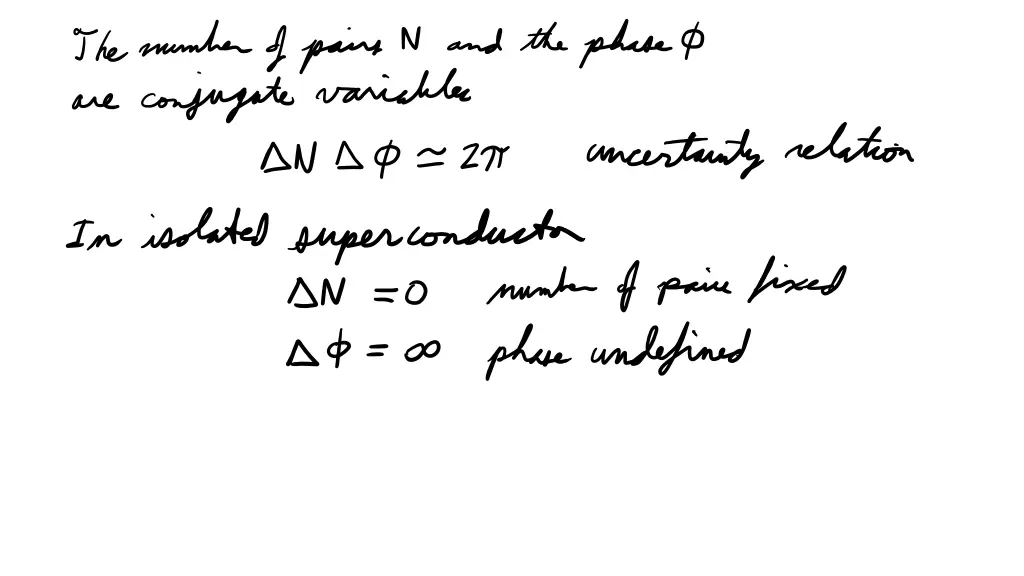 The number of pairs N and the phase ϕ
are conjugate variables
ΔN Δϕ ≃ 2π uncertainty relation
In isolated superconductor
ΔN = 0 number of pairs fixed
Δϕ = ∞ phase undefined